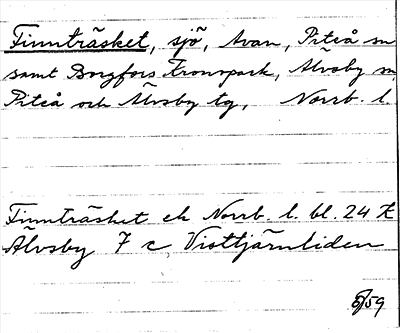 Finnträsket, sjö, Avan, Piteå sn
samt Borgfors kronopark, Älvsby sn,
Piteå och Älvsby tg, Norrb. l.
Finnträsket ek Norrb. l. bl. 24
Älvsby 7 c Visttjärnliden
59